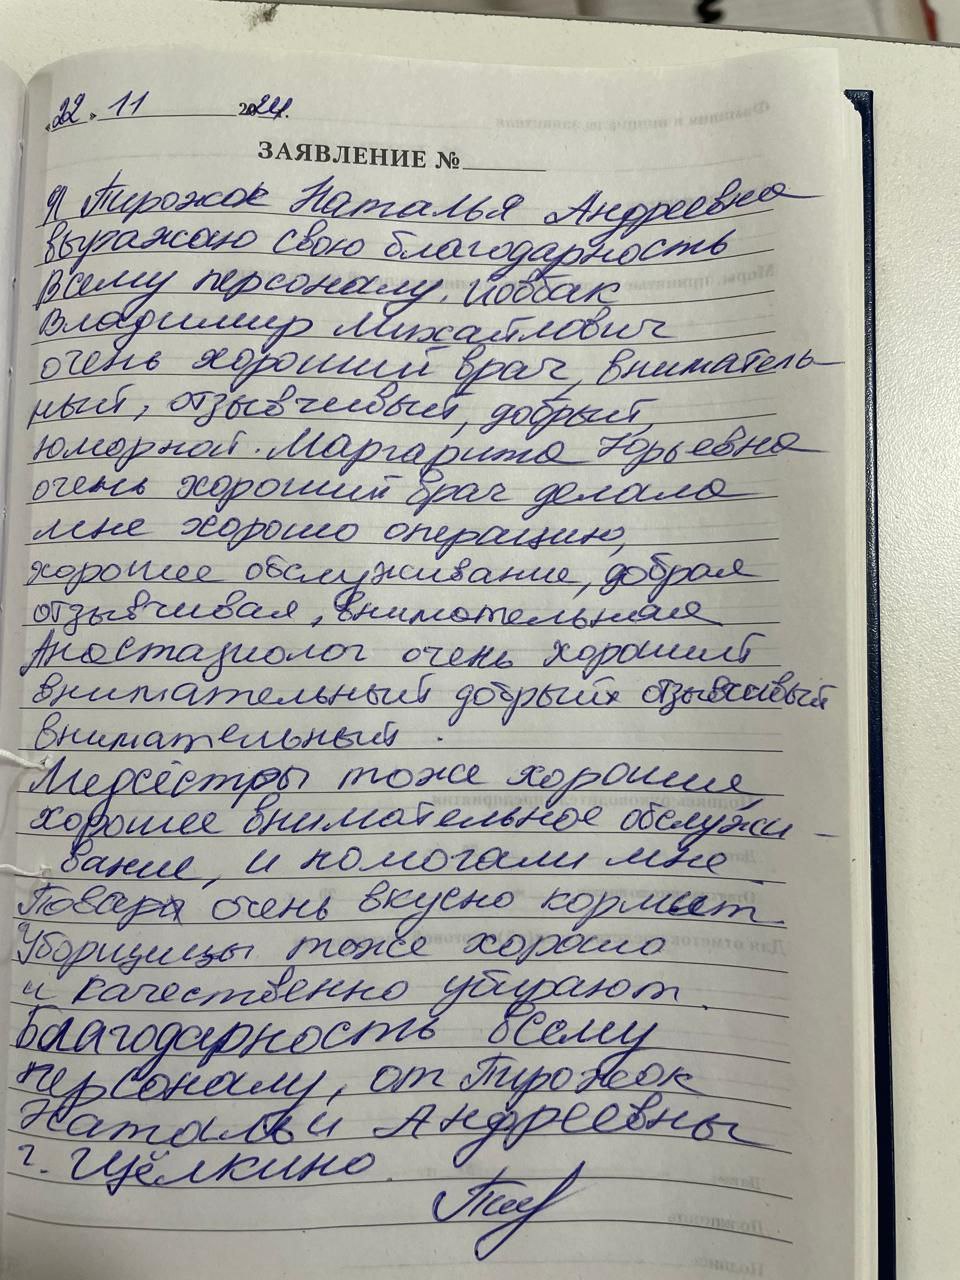 «22» 11 2024.
ЗАЯВЛЕНИЕ №
Я Пирожок Наталья Андреевна
выражаю свою благодарность
всему персоналу.
Владимир Михайлович
очень хороший врач, вниматель-
ный, отзывчивый, добрый,
юморной. Маргарита Юрьевна
очень хороший врач делала
мне хорошо операцию,
хорошее обслуживание, добрая
отзывчивая, внимательная
Анастазиолог очень хороший
внимательный добрый отзывчивый
внимательный.
Медсёстры тоже хорошие
хорошее внимательное обслужи-
вание, и помогали мне
Повара очень вкусно кормит
Уборщицы тоже хорошо
и качественно убирают.
Благодарность всему
персоналу, от Пирожок
Натальи Андреевны
г. Щёлкино.